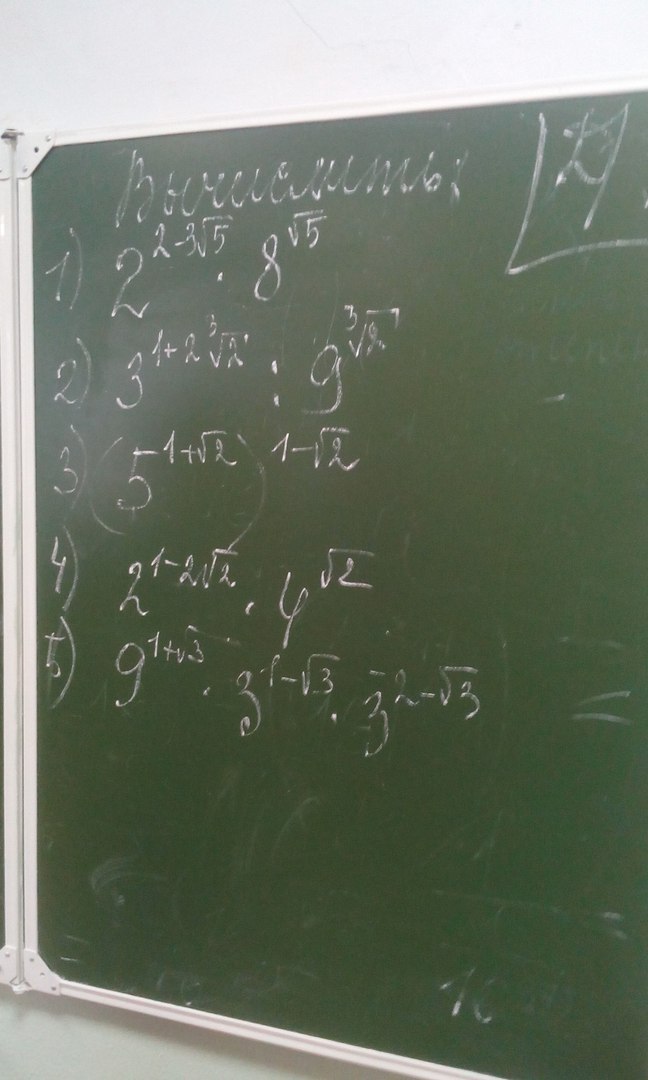 Вычислить:
1) 2^{2-3√5} · 8^{√5}
2) 3^{1+2∛2} : 9^{∛2}
3) (5^{1+√2})^{1-√2}
4) 2^{1-2√2} · 4^{√2}
5) 9^{1+√3} · 3^{1-√3} · 3^{-2-√3}